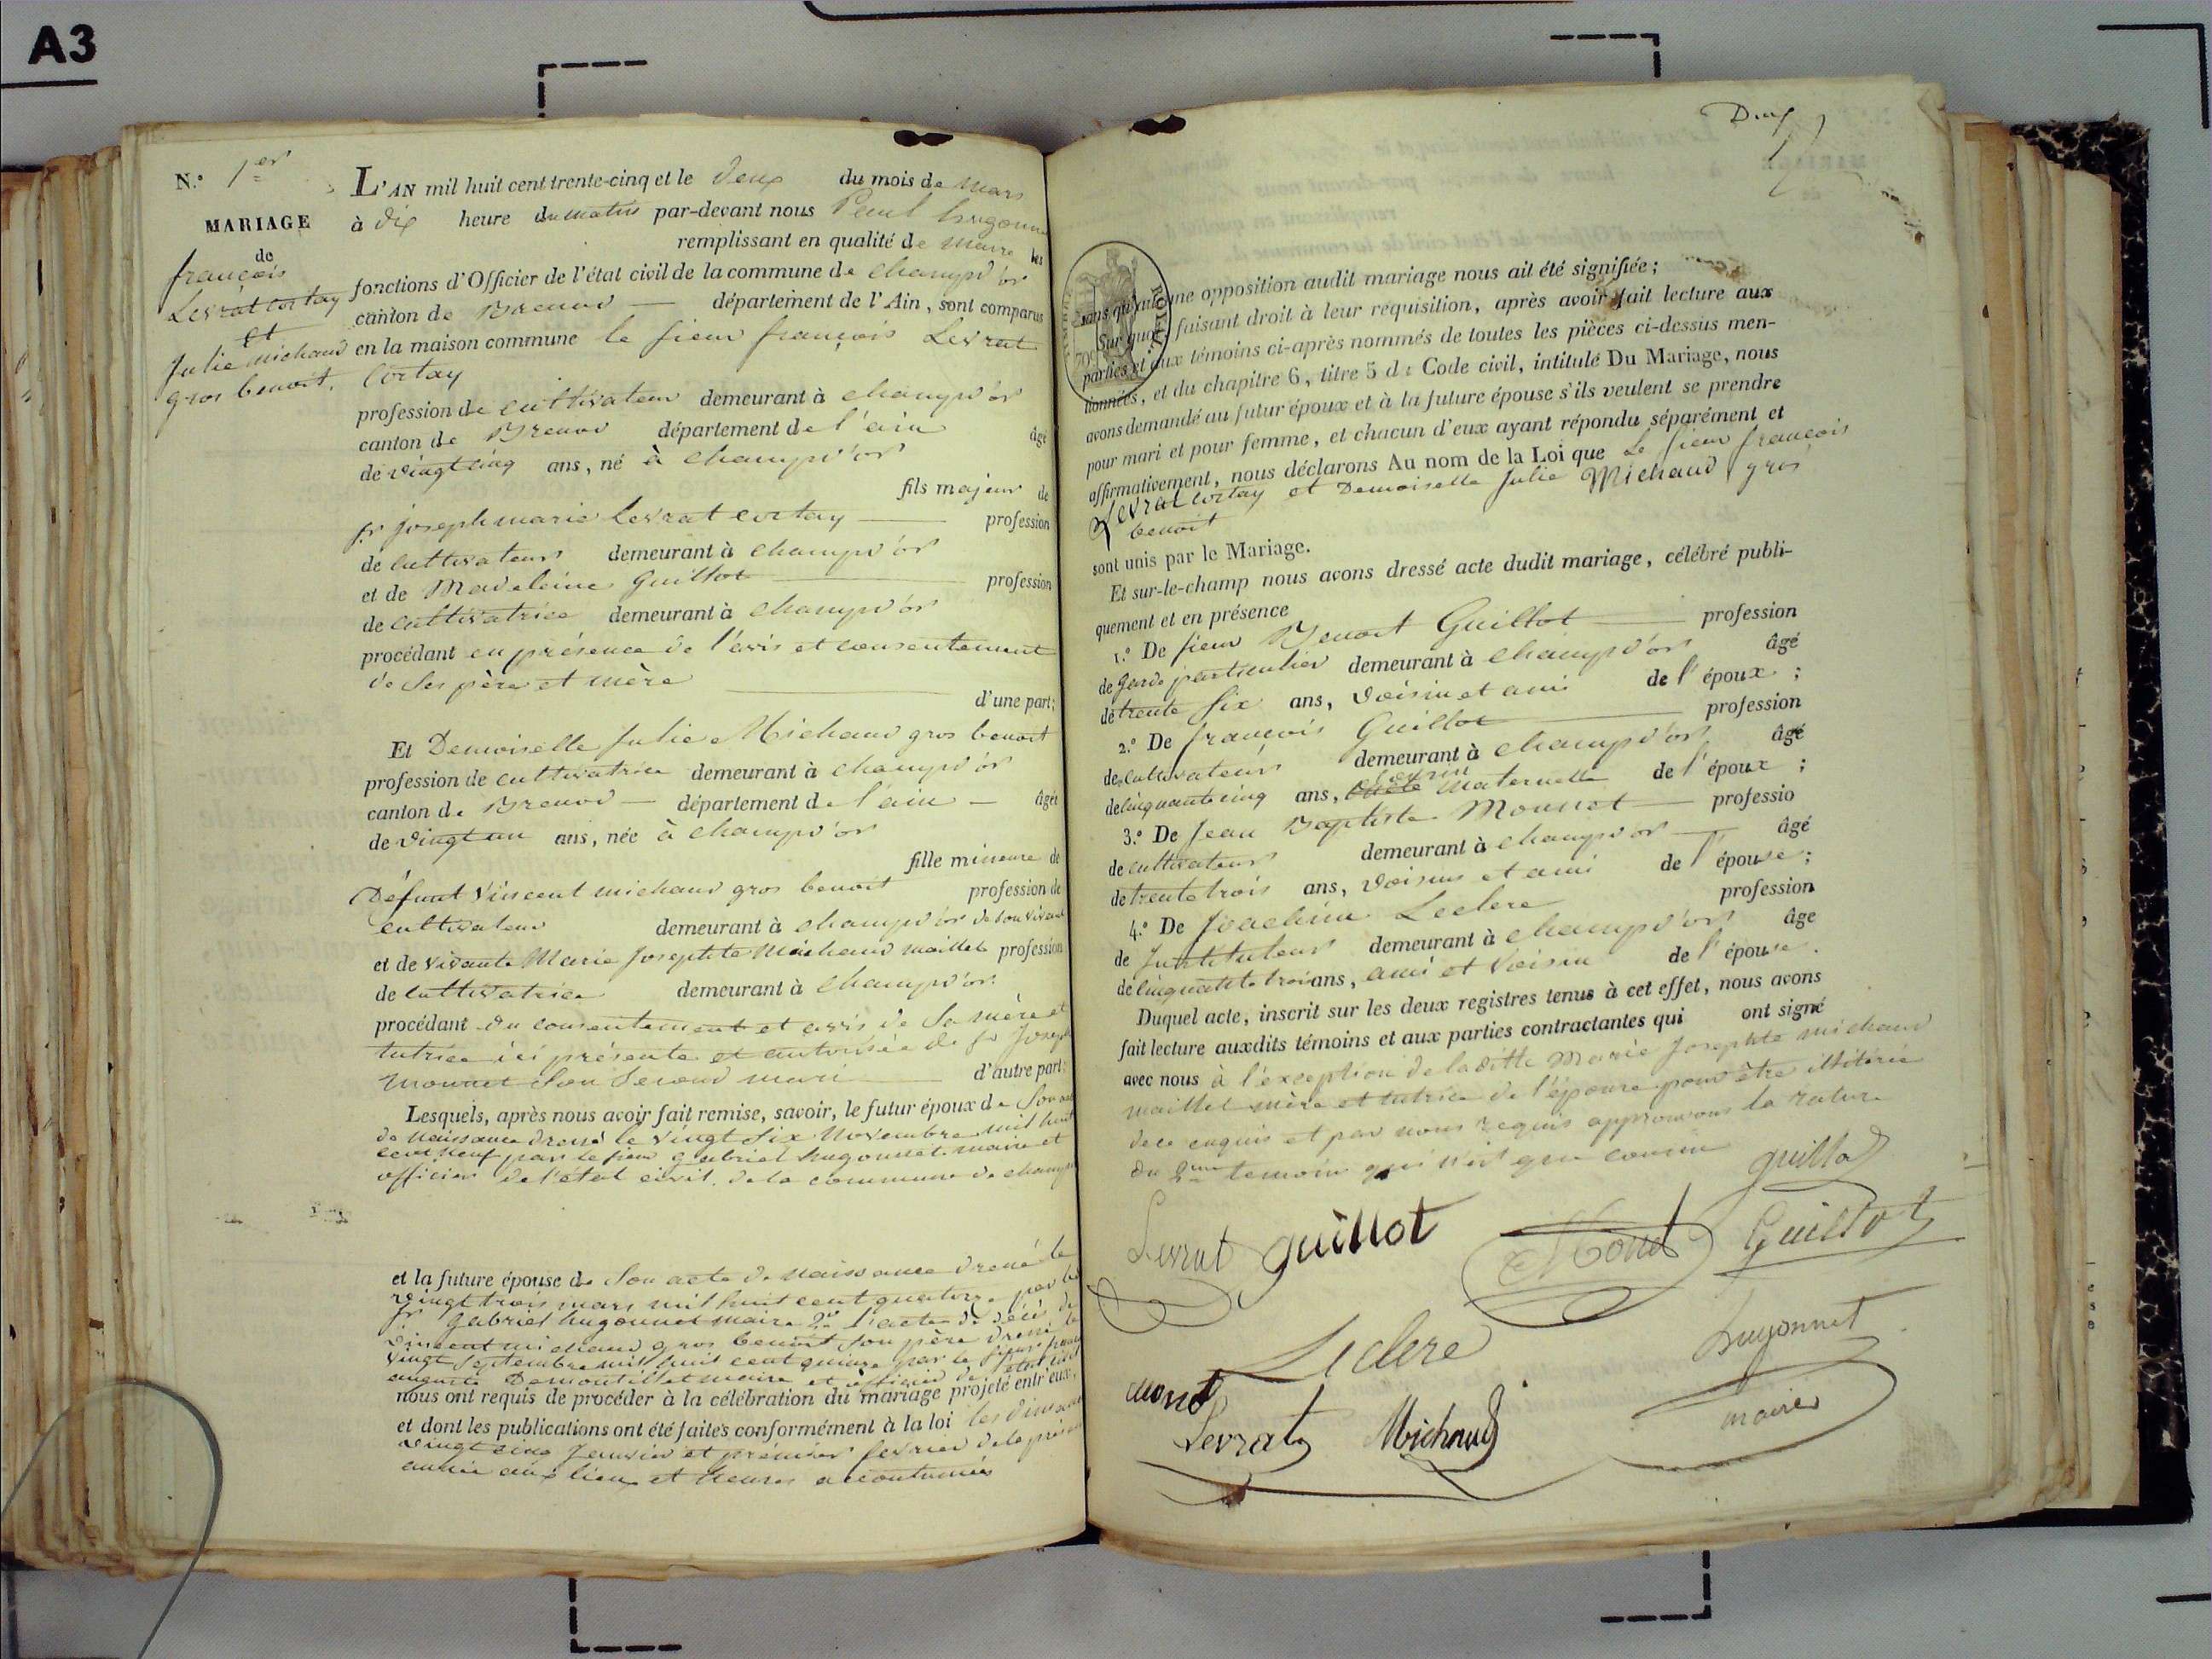 A3
N.° 1er
MARIAGE
de
françois
Levrat cortay
et
Julie michaud
gros benoit.
L'AN mil huit cent trente-cinq et le deux du mois de mars
à dix heure du matin par-devant nous Paul hugonnet
remplissant en qualité de maire les
fonctions d'Officier de l'état civil de la commune de champd'or
canton de Brenod département de l'Ain, sont comparus
en la maison commune le sieur françois Levrat
Cortay
profession de cultivateur demeurant à champd'or
canton de Brenod département de l'ain âgé
de vingt cinq ans, né à champd'or
fils majeur de
sr joseph marie Levrat cortay profession
de cultivateur demeurant à champd'or
et de Madeleine Guillot profession
de cultivatrice demeurant à champd'or
procédant en présence de l'avis et consentement
de ses père et mère
d'une part;
Et Demoiselle Julie Michaud gros benoit
profession de cultivatrice demeurant à champd'or
canton de Brenod département de l'ain âgée
de vingt un ans, née à champd'or
fille mineure de
Défunt Vincent michaud gros benoit profession de
cultivateur demeurant à champd'or de son vivant
et de vivante Marie Josephte Michaud maillet profession
de cultivatrice demeurant à champd'or
procédant du consentement et avis de sa mère et
tutrice ici présente et autorisée de sr Joseph
Monnet son second mari d'autre part:
Lesquels, après nous avoir fait remise, savoir, le futur époux de son acte
de naissance dressé le vingt six novembre mil huit
cent neuf par le sieur gabriel hugonnet maire et
officier de l'état civil de la commune de champd
et la future épouse de son acte de naissance dressé le
vingt trois mars mil huit cent quatorze par le
sr gabriel hugonnet maire 2° l'acte de décès de
vincent michaud gros benoit son père dressé le
vingt septembre mil huit cent quinze par le sieur
auguste Demontillet maire et officier de l'état civil
nous ont requis de procéder à la célébration du mariage projeté entr'eux,
et dont les publications ont été faites conformément à la loi les dimanches
vingt cinq janvier et premier fevrier de la présente
année aux lieux et heures accoutumées
Deux
sans qu'aucune opposition audit mariage nous ait été signifiée;
Sur quoi, faisant droit à leur requisition, après avoir fait lecture aux
parties et aux témoins ci-après nommés de toutes les pièces ci-dessus men-
tionnées, et du chapitre 6, titre 5 du Code civil, intitulé Du Mariage, nous
avons demandé au futur époux et à la future épouse s'ils veulent se prendre
pour mari et pour femme, et chacun d'eux ayant répondu séparément et
affirmativement, nous déclarons Au nom de la Loi que Le sieur françois
Levrat cortay et Demoiselle Julie Michaud gros
benoit
sont unis par le Mariage.
Et sur-le-champ nous avons dressé acte dudit mariage, célébré publi-
quement et en présence
1.° De sieur Benoit Guillot profession
de garde particulier demeurant à champd'or âgé
de trente six ans, voisin et ami de l'époux;
2.° De françois Guillot profession
de cultivateur demeurant à champd'or âgé
cousin
de cinquante cinq ans, maternelle de l'époux;
3.° De Jean Baptiste Monnet professio
de cultivateur demeurant à champd'or âgé
de trente trois ans, voisin et ami de l'épouse;
4.° De Joachim Leclerc profession
de Instituteur demeurant à champd'or âge
de cinquante trois ans, ami et voisin de l'épouse.
Duquel acte, inscrit sur les deux registres tenus à cet effet, nous avons
fait lecture auxdits témoins et aux parties contractantes qui ont signé
avec nous à l'exception de laditte Marie Josephte michaud
maillet mère et tutrice de l'épouse pour être illitérée
de ce enquis et par nous requis approuvons la rature
du 2me temoin qui n'est que cousin
guillot
Levrat guillot Monet Guillot
Leclerc hugonnet
monet maire
Levrat Michaud